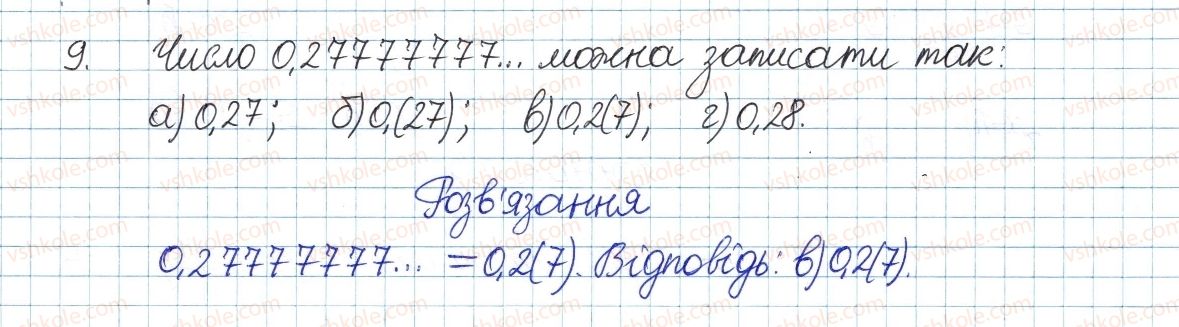 9. Число 0,27777777... можна записати так:
а) 0,27; б) 0,(27); в) 0,2(7); г) 0,28.
Розв'язання
0,27777777... = 0,2(7). Відповідь: в) 0,2(7).